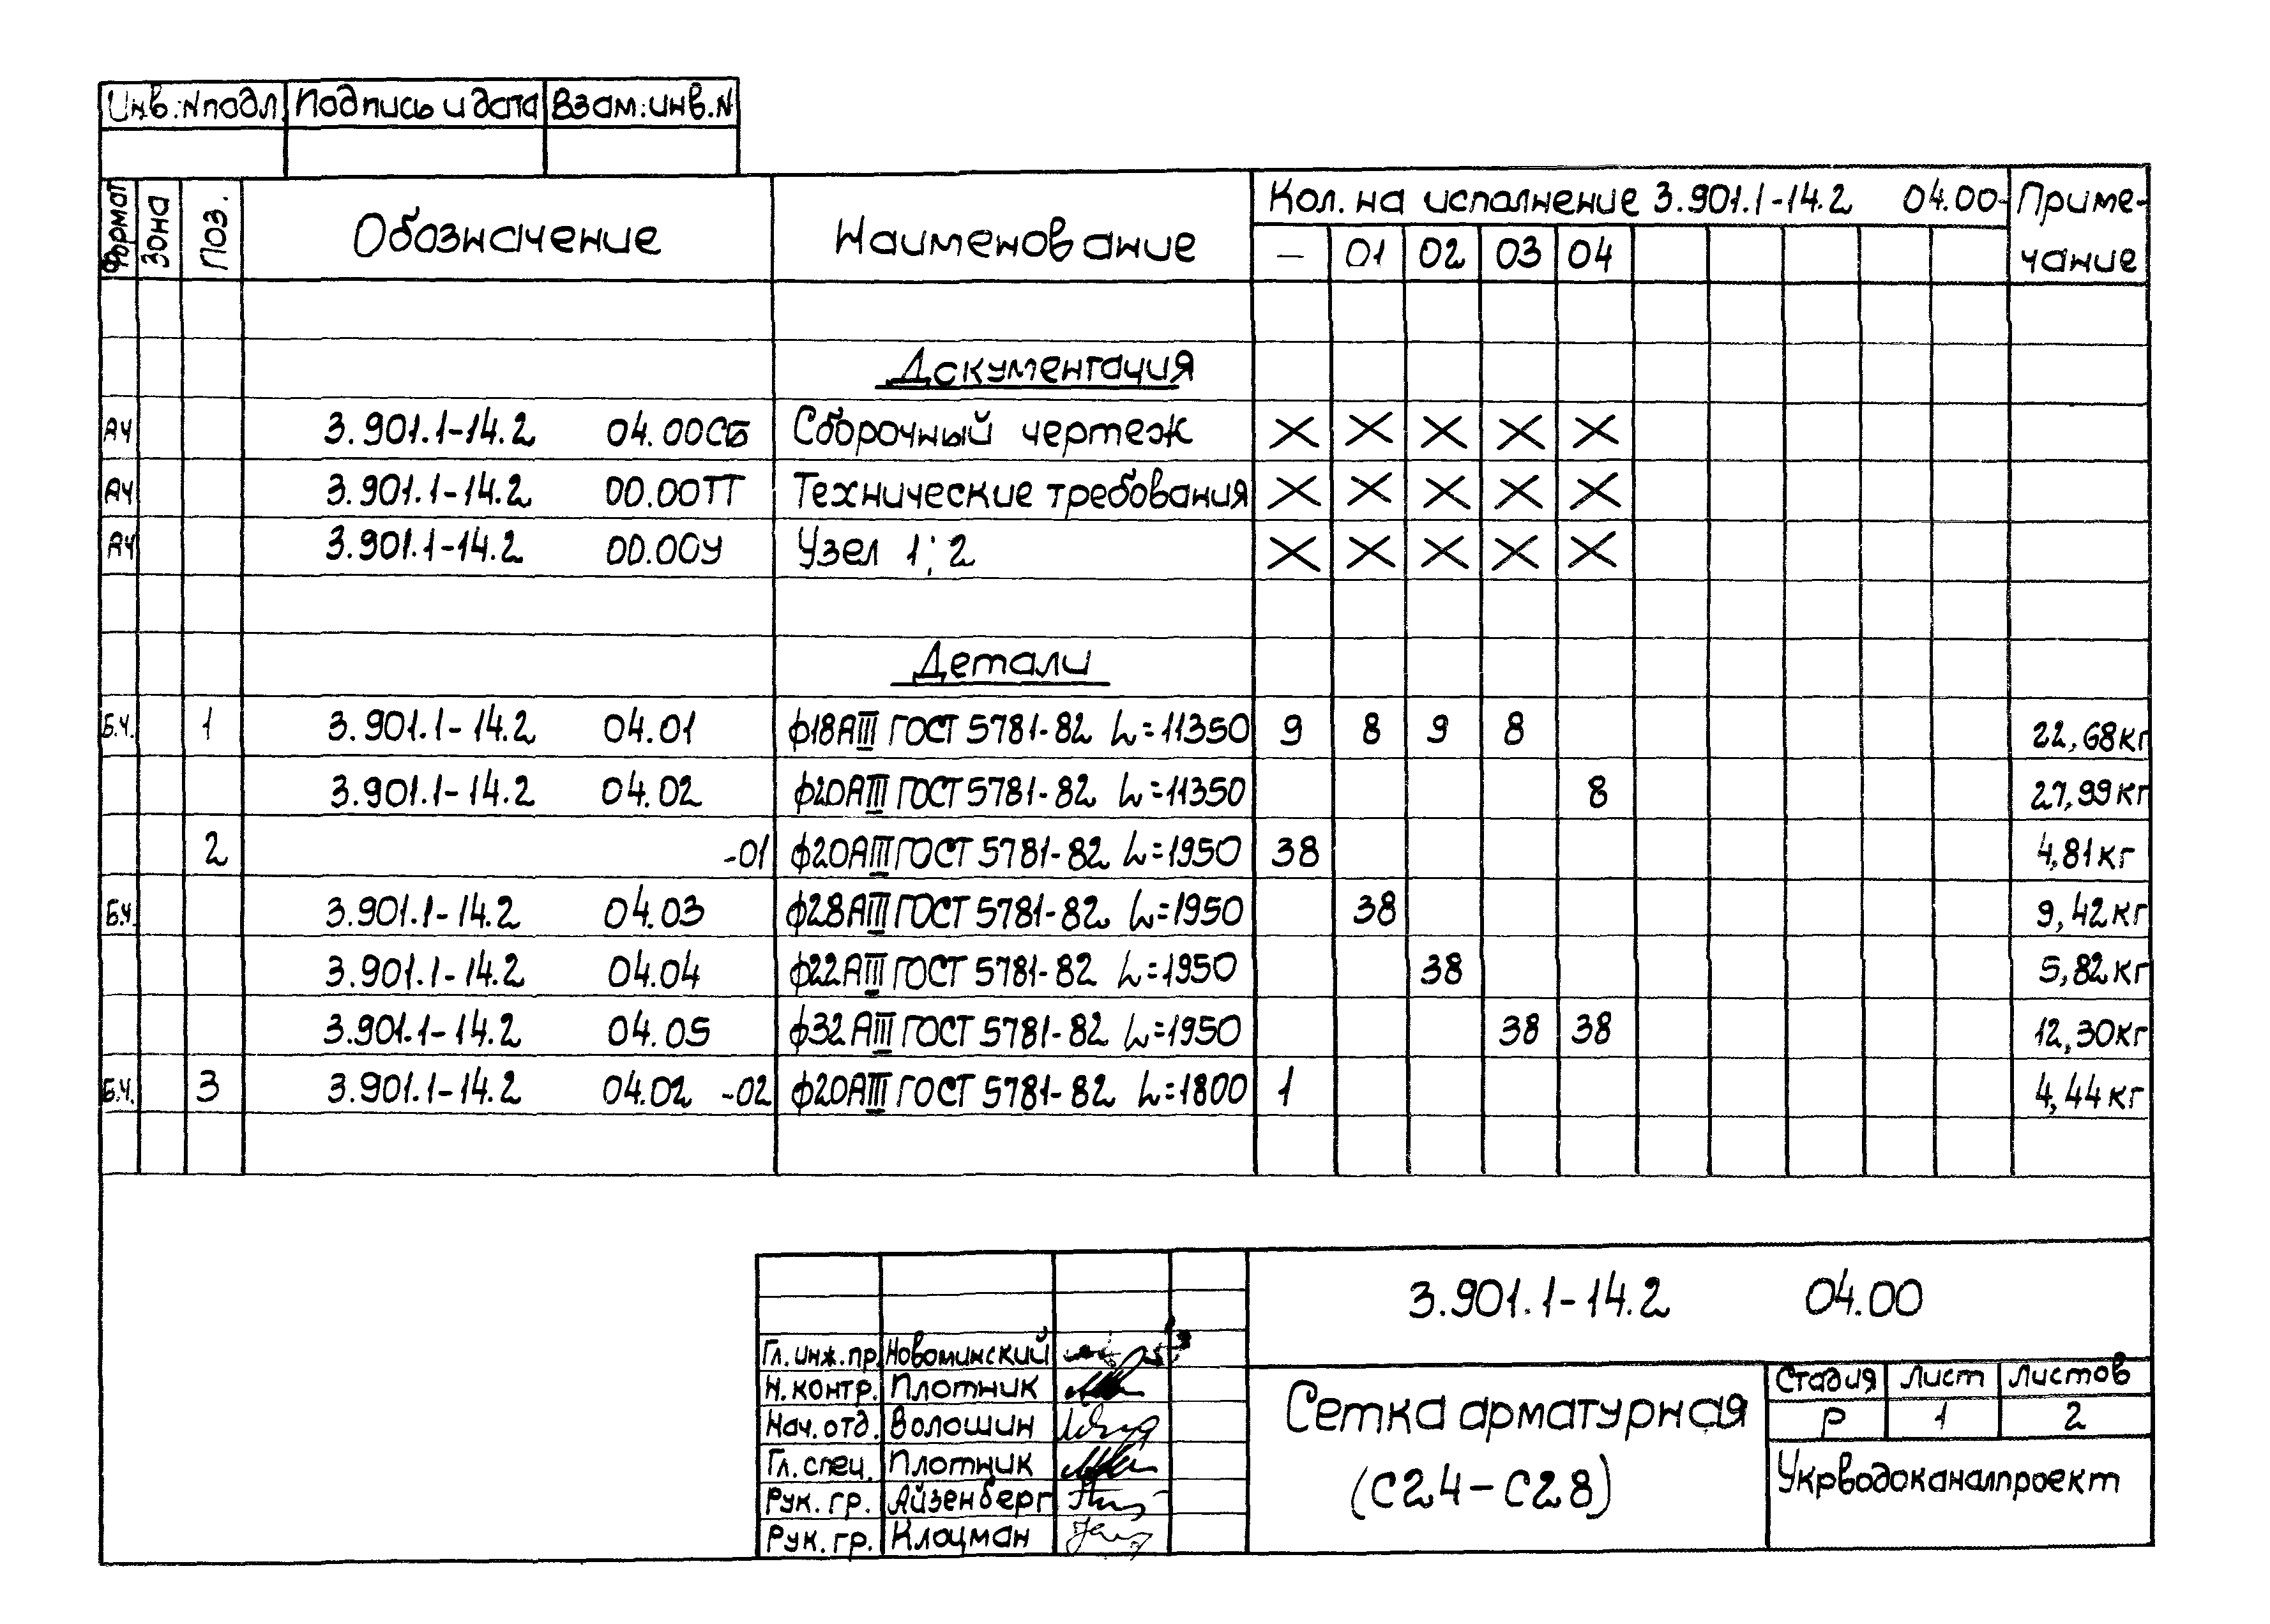 Инв.Nподл. Подпись и дата Взам.инв.N
Формат Зона Поз. Обозначение Наименование Кол. на исполнение 3.901.1-14.2 04.00- Приме-
– 01 02 03 04 чание
Документация
А4 3.901.1-14.2 04.00СБ Сборочный чертеж X X X X X
А4 3.901.1-14.2 00.00ТТ Технические требования X X X X X
А4 3.901.1-14.2 00.00У Узел 1; 2 X X X X X
Детали
Б.Ч. 1 3.901.1-14.2 04.01 ф18АIII ГОСТ 5781-82 L=11350 9 8 9 8 22,68кг
3.901.1-14.2 04.02 ф20АIII ГОСТ 5781-82 L=11350 8 27,99кг
2 -01 ф20АIII ГОСТ 5781-82 L=1950 38 4,81кг
Б.Ч. 3.901.1-14.2 04.03 ф28АIII ГОСТ 5781-82 L=1950 38 9,42кг
3.901.1-14.2 04.04 ф22АIII ГОСТ 5781-82 L=1950 38 5,82кг
3.901.1-14.2 04.05 ф32АIII ГОСТ 5781-82 L=1950 38 38 12,30кг
Б.Ч. 3 3.901.1-14.2 04.02 -02 ф20АIII ГОСТ 5781-82 L=1800 1 4,44кг
3.901.1-14.2 04.00
Гл. инж.пр. Новоминский
Н.контр. Плотник
Нач.отд. Волошин
Гл.спец. Плотник
Рук. гр. Айзенберг
Рук. гр. Клоцман
Сетка арматурная
(С24-С28)
Стадия Лист Листов
Р 1 2
Укрводоканалпроект